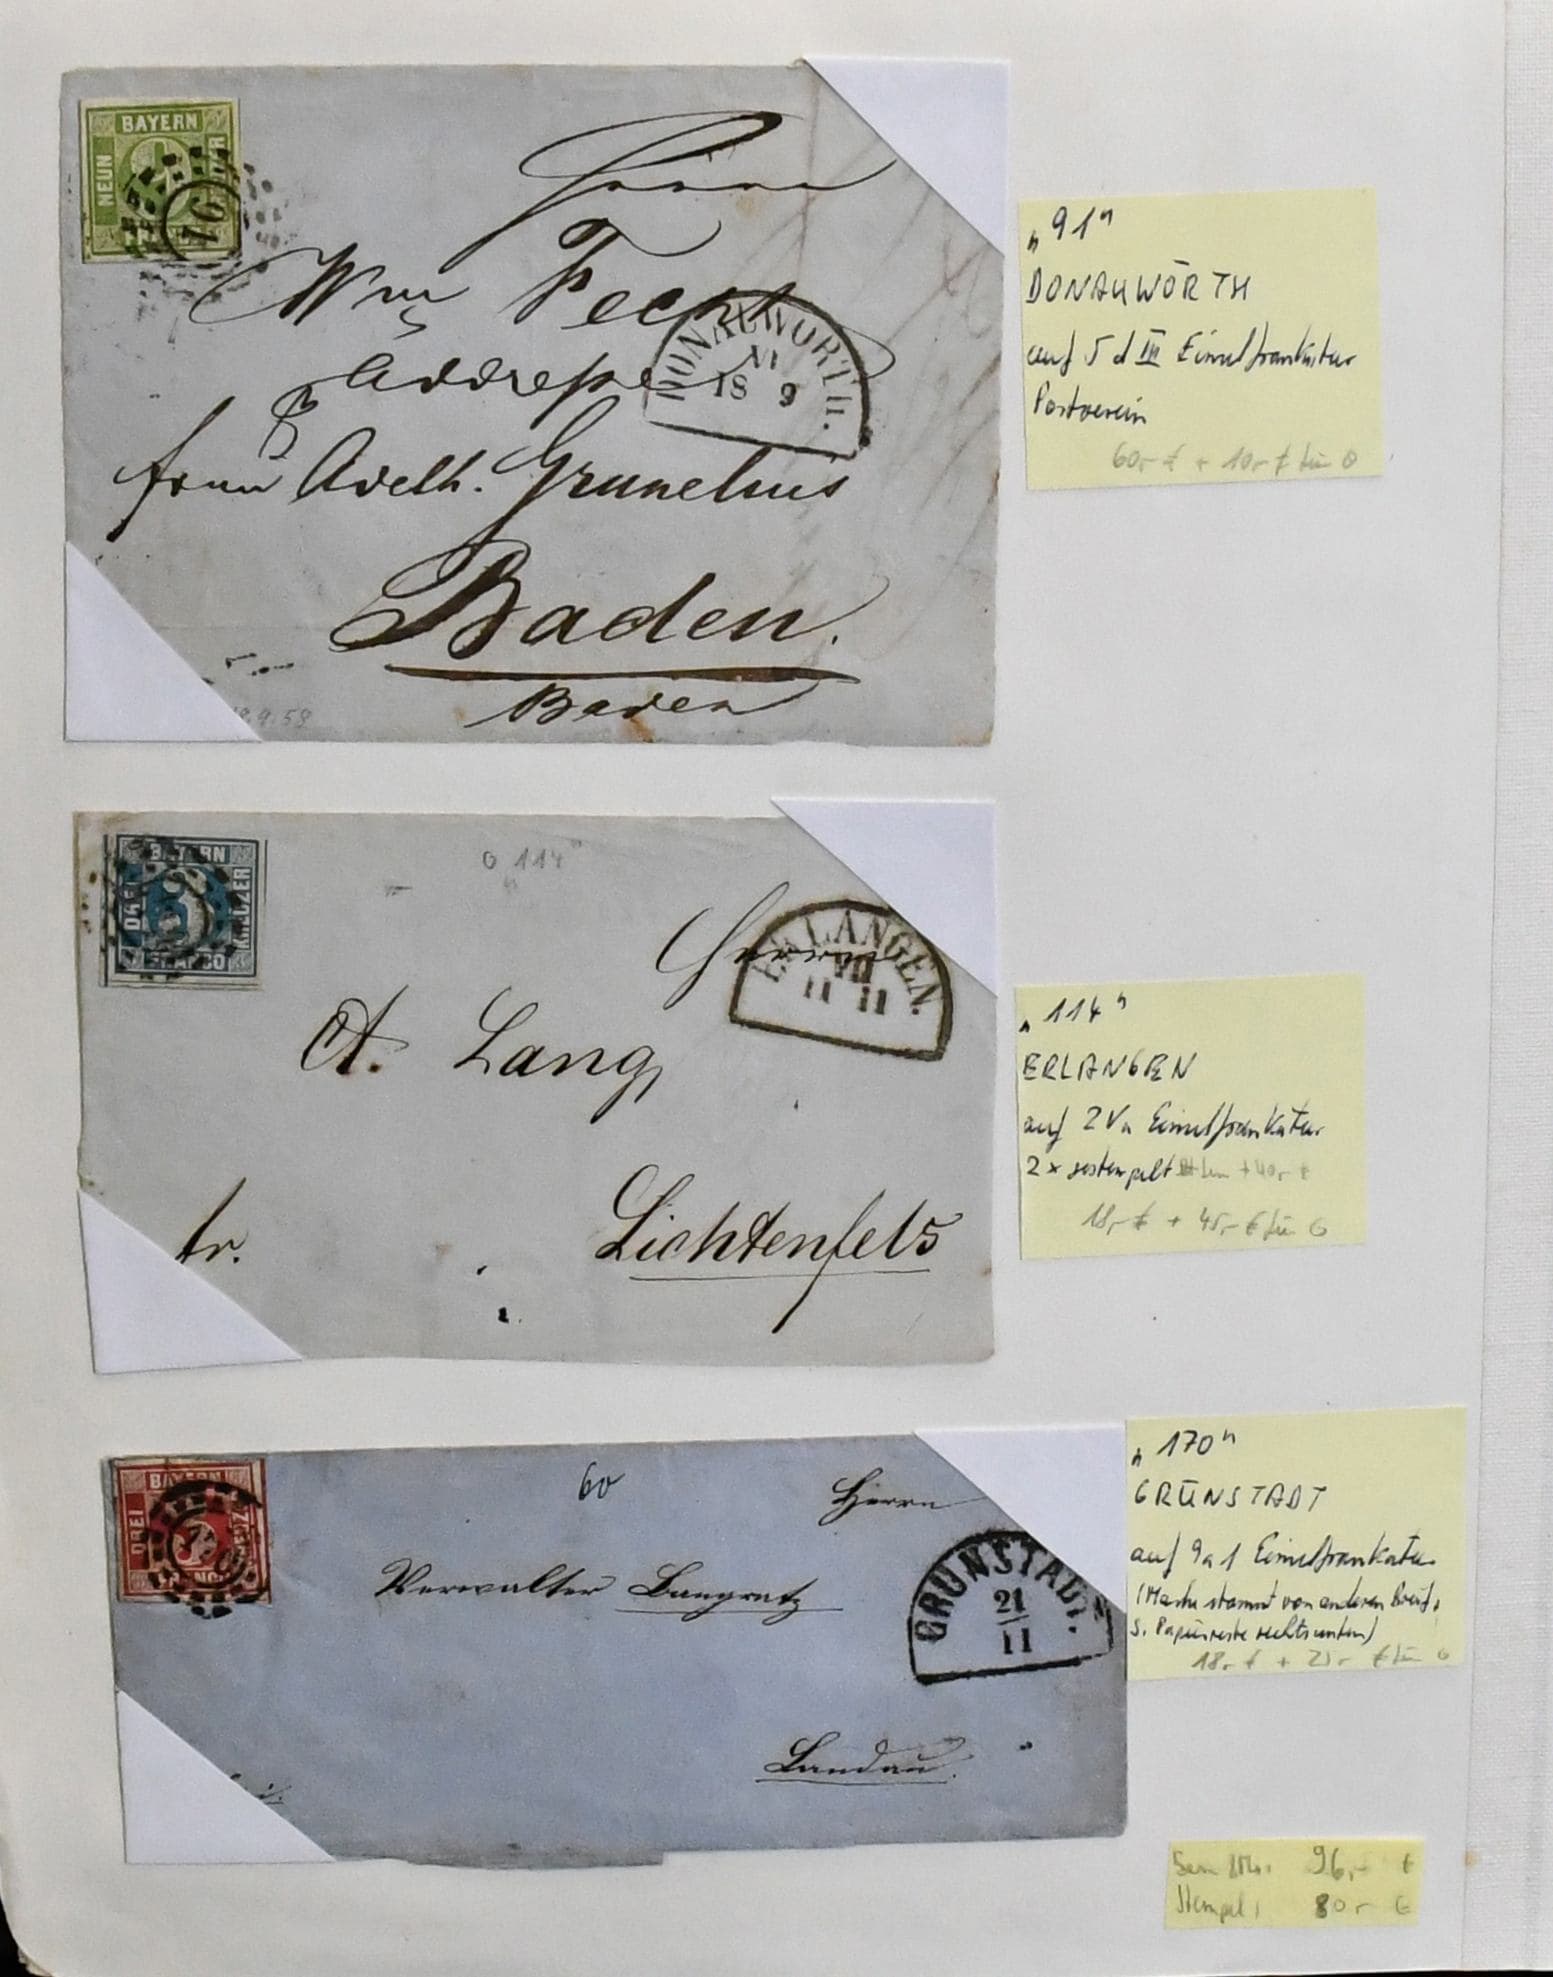 BAYERN
NEUN
91
Herrn
Wm Fecht
Addresse
DONAUWÖRTH.
VI
18 9
frau Adelh. Grunelius
Baden.
Baden
9.58
„91“
DONAUWÖRTH
auf 5 d III Einzelfrankatur
Postverein
60,- € + 10,- € für
BAYERN
DREI
KREUZER
FRANCO
114"
Herrn
ERLANGEN.
VII
11 11
A. Lang,
fr.
Lichtenfels
„114“
ERLANGEN
auf 2 V Einzelfrankatur
2 x gestempelt + 40,- €
18,- € + 45,- € für
BAYERN
DREI
170
60
Herrn
Verwalter
GRÜNSTADT.
21
11
Landau.
„170“
GRÜNSTADT
auf 9a1 Einzelfrankatur
(Marke stammt von anderem Brief,
s. Papierreste rechts unten)
18,- € + € für
96,- €
Stempel: 80,- €